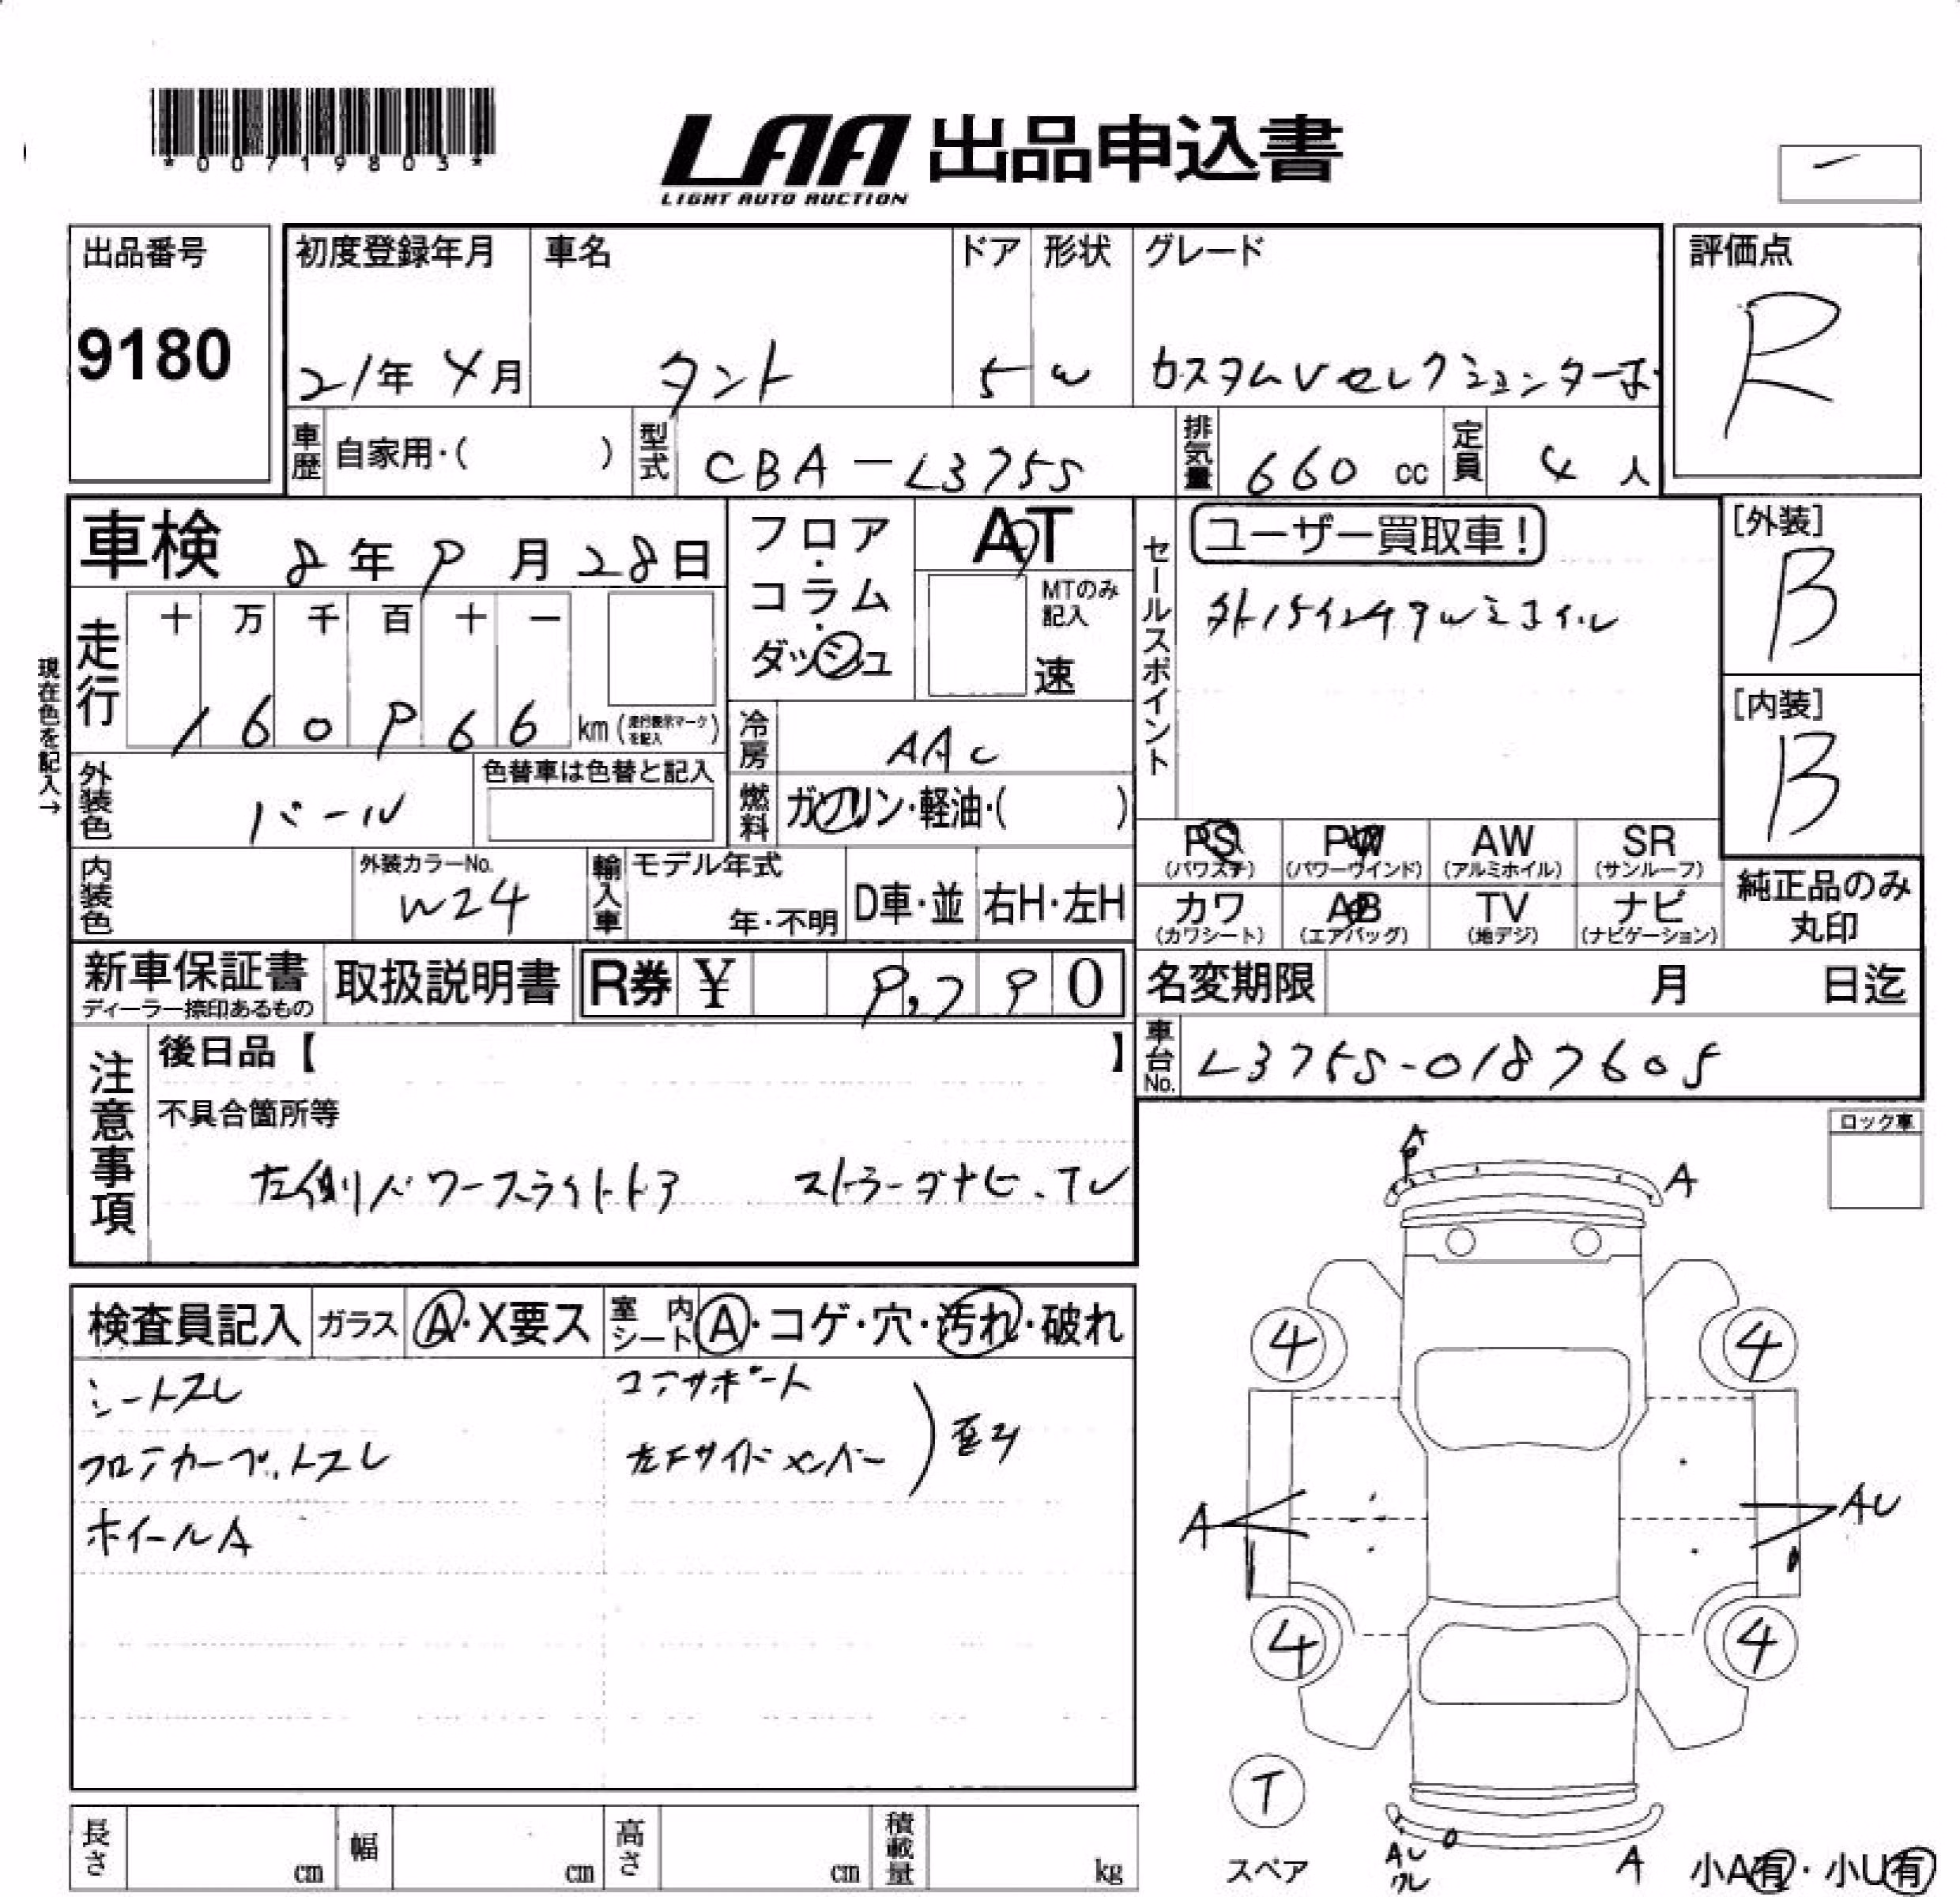 *00719803*
LAA 出品申込書
LIGHT AUTO AUCTION
出品番号
9180
初度登録年月
21年 4月
車名
タント
ドア
5
形状
W
グレード
カスタムVセレクションターボ
評価点
R
車歴 自家用・( )
型式 CBA-L375S
排気量 660 cc
定員 4 人
車検 8年9月28日
走行 十 万 千 百 十 一
160966 km (走行表示マークを記入)
現在色を記入→
フロア・コラム・ダッシュ
AT
MTのみ記入
速
セールスポイント
ユーザー買取車!
[外装]
B
[内装]
B
冷房 AAC
燃料 ガソリン・軽油・( )
外装色 パール
色替車は色替と記入
内装色
外装カラーNo.
W24
輸入車 モデル年式
年・不明
D車・並
右H・左H
PS
(パワステ)
PW
(パワーウインド)
AW
(アルミホイル)
SR
(サンルーフ)
カワ
(カワシート)
AB
(エアバッグ)
TV
(地デジ)
ナビ
(ナビゲーション)
純正品のみ
丸印
新車保証書
ディーラー捺印あるもの
取扱説明書
R券 ¥ 9,790
名変期限 月 日迄
車台No. L375S-0187605
注意事項
後日品【 】
不具合箇所等
左側パワースライドドア ストラーダナビ、TV
ロック車
検査員記入 ガラス A・X要ス 室内シート A・コゲ・穴・汚れ・破れ
シートスレ
フロアカーペットスレ
ホイールA
コアサポート
左Fサイドメンバー
A
A
4
4
A
AU
4
4
T
スペア
AU
A
小A有・小U有
長さ cm
幅 cm
高さ cm
積載量 kg